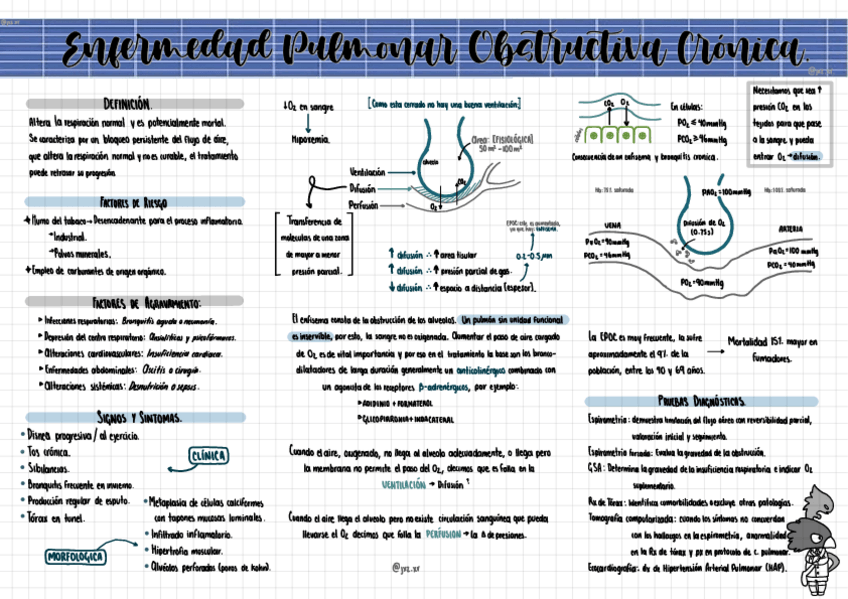 @jvz_xr
Enfermedad Pulmonar Obstructiva Crónica.
@jvz_xr
DEFINICIÓN.
Altera la respiración normal y es potencialmente mortal.
Se caracteriza por un bloqueo persistente del flujo de aire,
que altera la respiración normal y no es curable, el tratamiento
puede retrasar su progresión.
FACTORES DE RIESGO
+Humo del tabaco→Desencadenante para el proceso inflamatorio.
→Industrial.
→Polvos minerales.
+Empleo de carburantes de origen orgánico.
FACTORES DE AGRAVAMIENTO:
▸Infecciones respiratorias: Bronquitis aguda o neumonía.
▸Depresión del centro respiratorio: Ansiolíticos y psicofármacos.
▸Alteraciones cardiovasculares: Insuficiencia cardiaca.
▸Enfermedades abdominales: Ascitis o cirugía.
▸Alteraciones sistémicas: Desnutrición o sepsis.
SIGNOS Y SINTOMAS.
• Disnea progresiva / al ejercicio.
• Tos crónica.
• Sibilancias.
• Bronquitis frecuente en invierno.
• Producción regular de esputo.
• Tórax en tunel.
CLÍNICA
MORFOLOGICA
• Metaplasia de células caliciformes
con tapones mucosas luminales.
• Infiltrado inflamatorio.
• Hipertrofia muscular.
• Alvéolos perforados (poros de Kohn).
↓O₂ en sangre
Hipoxemia.
[Como esta cerrado no hay una buena ventilación]
alveolo
Área: [FISIOLÓGICA]
50m² -100m²
Ventilación
Difusión
Perfusión
CO₂
O₂
Transferencia de
moléculas de una zona
de mayor a menor
presión parcial.
EPOC: este, es aumentada,
ya que, hay:
↑ difusión ∴ ↑ área tisular
↑ difusión ∴ ↑ presión parcial de gas.
↓ difusión ∴ ↑ espacio a distancia (espesor).
0.2-0.5μm
El enfisema consta de la obstrucción de los alveolos. Un pulmón sin unidad funcional
es inservible, por esto, la sangre no es oxigenada. Aumentar el paso de aire cargado
de O₂ es de vital importancia y por eso en el tratamiento la base son los bronco-
dilatadores de larga duración generalmente un anticolinérgico combinado con
un agonista de los receptores β-adrenérgicos, por ejemplo:
▸ACLIDINIO + FORMATEROL
▸GLICOPIRRONIA+INDACATERAL
Cuando el aire, oxigenado, no llega al alveolo adecuadamente, o llega pero
la membrana no permite el paso del O₂, decimos que es falla en la
VENTILACIÓN → Difusión
Cuando el aire llega el alveolo pero no existe circulación sanguínea que pueda
llevarse el O₂ decimos que falla la PERFUSION → La Δ de presiones.
@jvz_xr
CO₂ O₂
células
En células:
PO₂ ≤ 40mmHg
PCO₂ ≥ 46mmHg
Necesitamos que sea ↑
presión CO₂ en los
tejidos para que pase
a la sangre y pueda
entrar O₂ → difusión.
Consecuencia de un enfisema y bronquitis cronica.
Hb: 75% saturada
PAO₂ =100mmHg
Hb: 100% saturada
Difusión de O₂
(0.75s)
VENA
PvO₂=40mmHg
PCO₂=46mmHg
ARTERIA
PaO₂=100
PCO₂=40mmHg
PO₂=40mmHg
La EPOC es muy frecuente, la sufre
aproximadamente el 9% de la
población, entre los 40 y 69 años.
→ Mortalidad 15% mayor en
fumadores.
PRUEBAS DIAGNÓSTICAS.
Espirometria: demuestra limitación del flujo aéreo con reversibilidad parcial,
valoración inicial y seguimiento.
Espirometria forzada: Evalua la gravedad de la obstrucción.
GSA: Determina la gravedad de la insuficiencia respiratoria e indicar O₂
suplementario.
Rx de Tórax: Identifica comorbilidades o excluye otras patologías.
Tomografía computarizada: cuando los síntomas no concuerdan
con los hallazgos en la espirometría, anormalidad
en la Rx de tórax y px en protocolo de c. pulmonar.
Ecocardiografía: dx de Hipertensión Arterial Pulmonar (HAP).